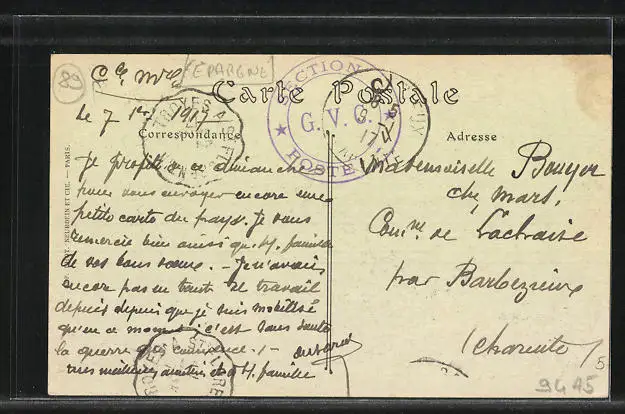 (EPARGNE)
Carte Postale
Le 7 1917
Correspondance
Adresse
SECTION
G. V. C.
POSTE
TROYES
Je profite de ce dimanche
pour vous envoyer encore une
petite carte du pays. Je vous
remercie bien ainsi que M. famille
de vos bons vœux. - Je n'avais
encore pas eu tant de travail
depuis depuis que je suis mobilisé
qu'en ce moment c'est sans doute
la guerre qui commence. -
mes meilleures amitiés à M. famille
Mademoiselle Bouyer
chez Mars,
Comne de Lachaise
par Barbezieux
(Charente)
NEURDEIN ET CIE. — PARIS.
5
9445